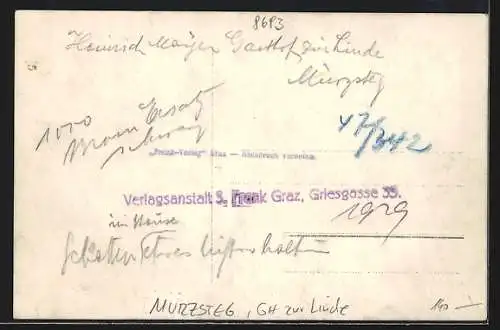 8693
Heinrich Gasthof zur Linde
Mürzsteg
1000
braun Ersatz
schwarz
47/342
Graz — Nachdruck verboten.
Verlagsanstalt S. Frank Graz, Griesgasse 35.
im Hause
1929
Schatten etwas
MÜRZSTEG, GH zur Linde